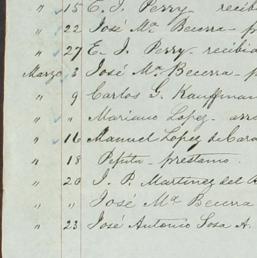 " 15 E. J. Perry recib
" 22 José Mª Becerra p
" 27 E. J. Perry recibi
Marzo 3 José Mª Becerra p
" 9 Carlos G. Kauffman
" " Mariano López arr
" 16 Manuel López de Cara
" 18 Pepita prestamo
" 20 J. P. Martinez del
" " José Mª Becerra
" 23 José Antonio Sosa A.